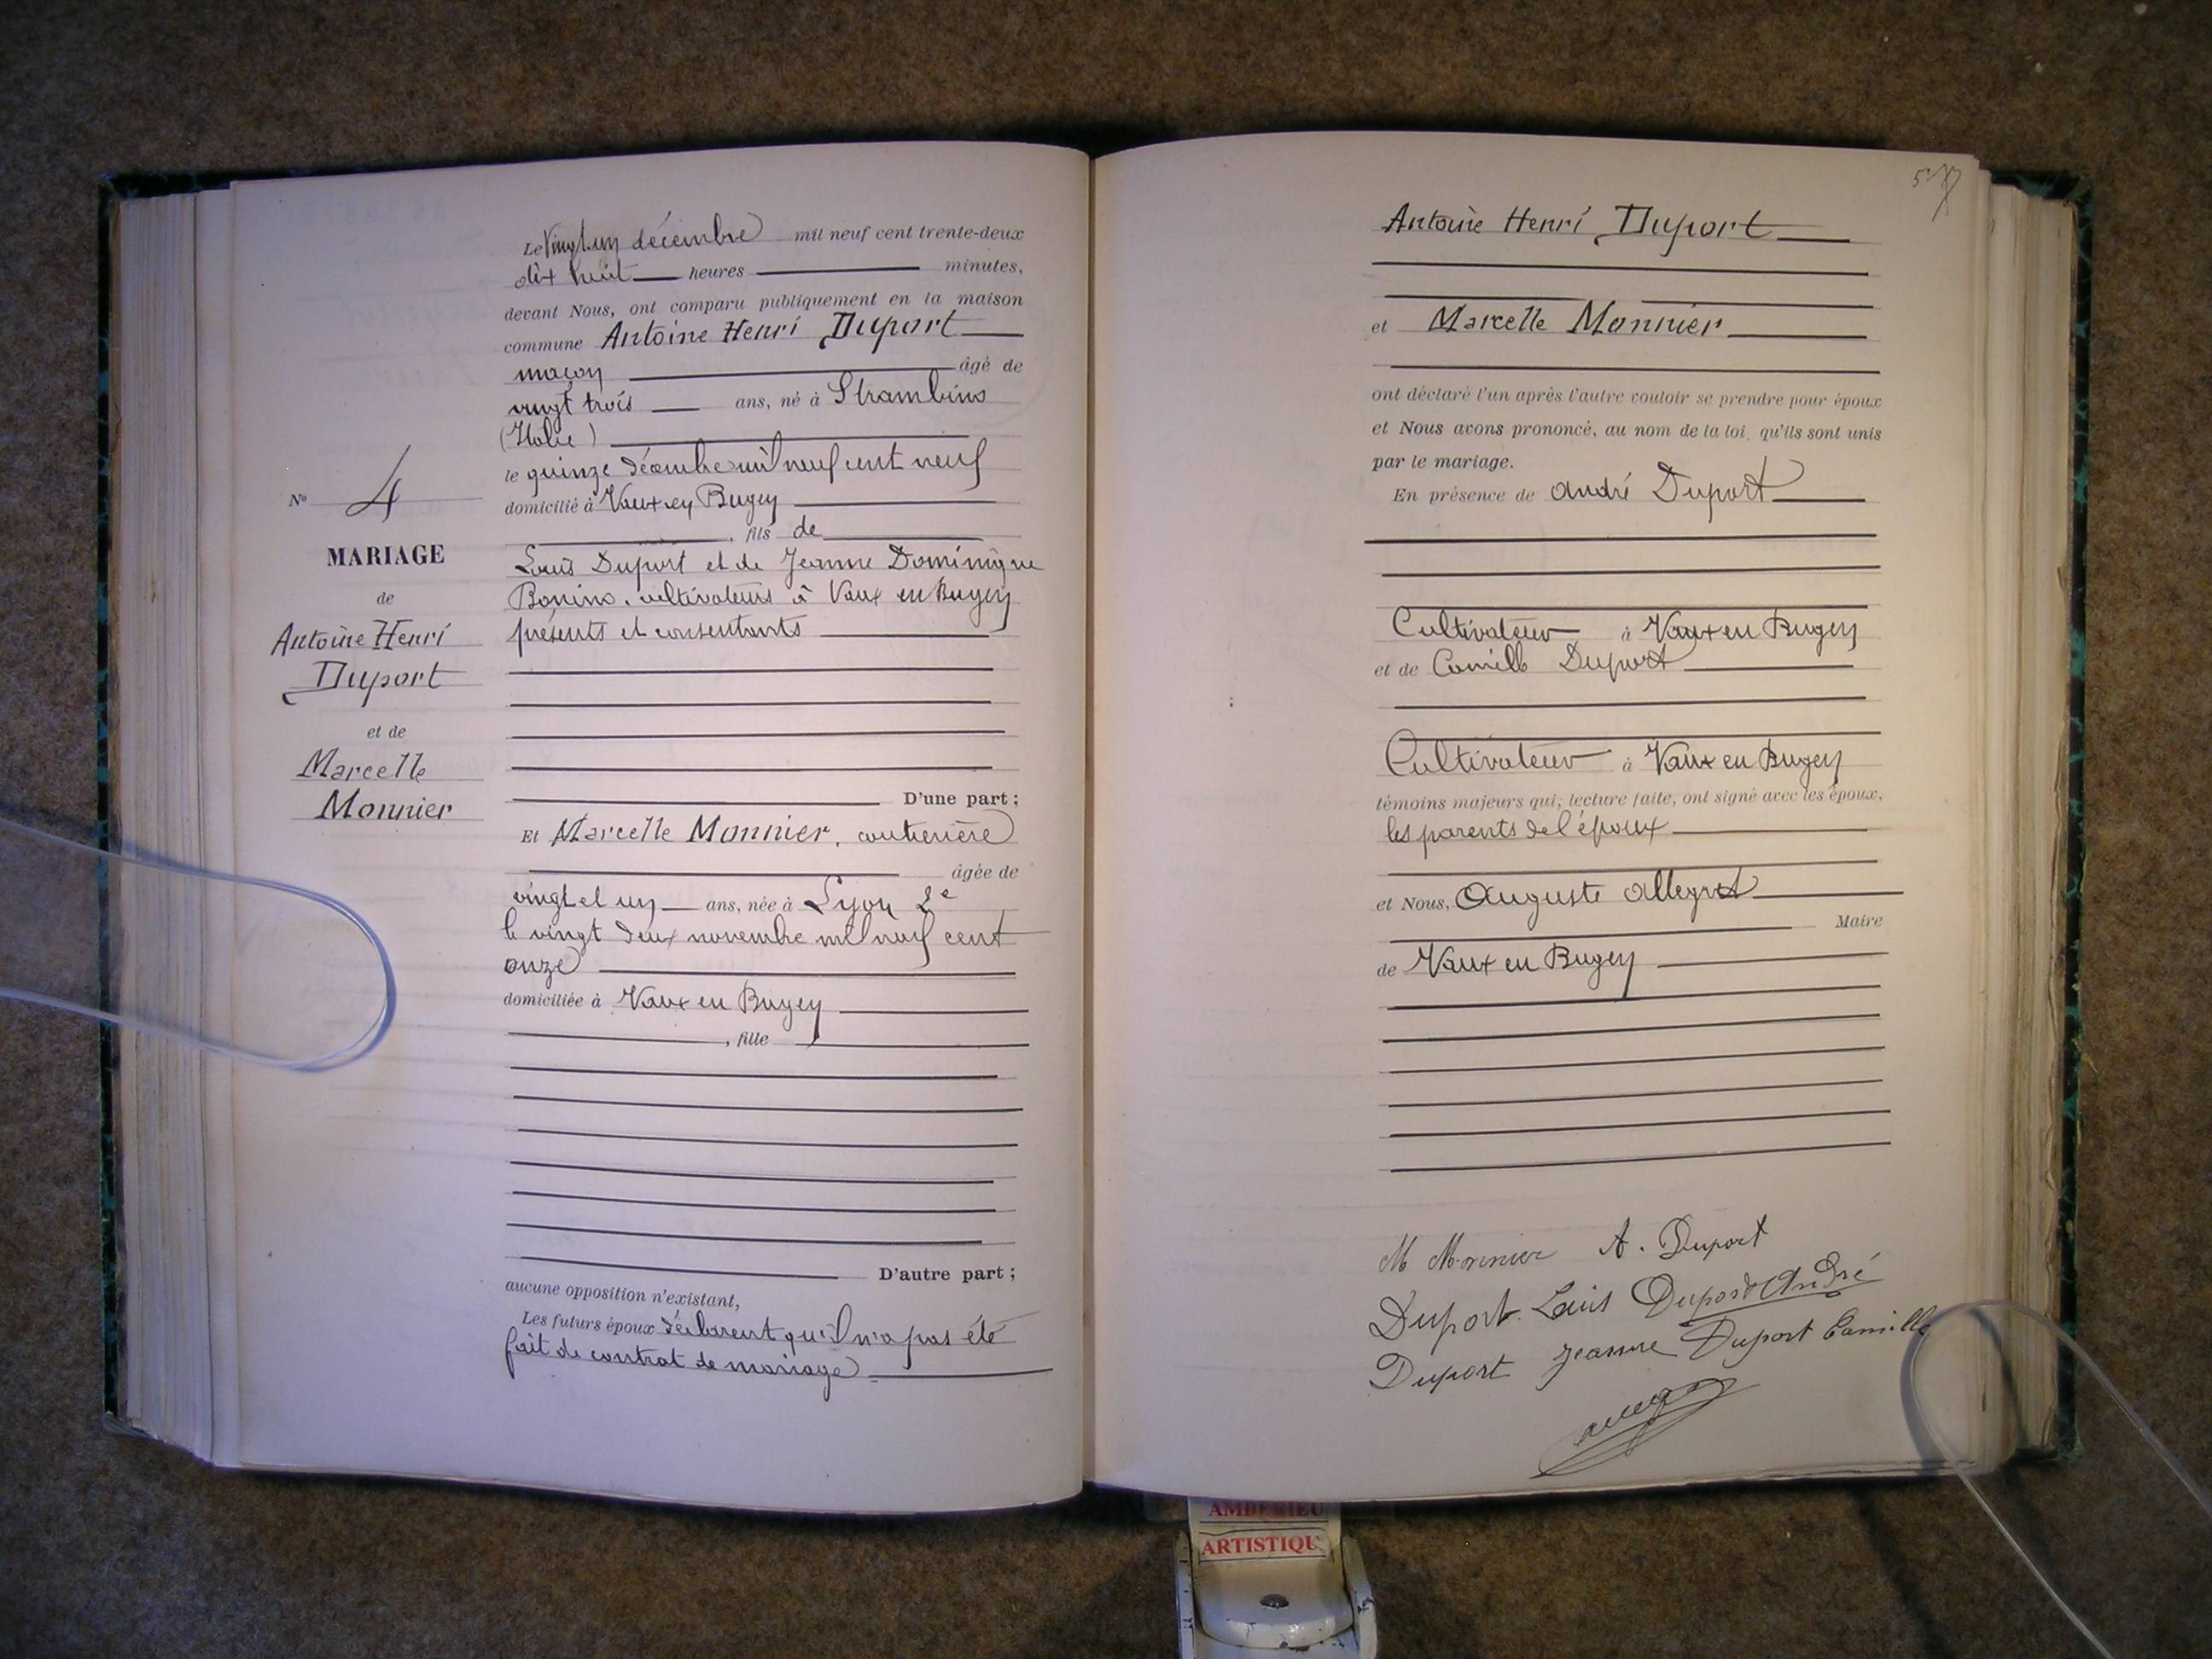 Le Vingt un décembre mil neuf cent trente-deux
dix huit heures minutes,
devant Nous, ont comparu publiquement en la maison
commune Antoine Henri Duport
maçon âgé de
vingt trois ans, né à Strambino
(Italie)
le quinze décembre mil neuf cent neuf
domicilié à Vaux en Bugey
, fils de
Louis Duport et de Jeanne Dominique
Bonino, cultivateurs à Vaux en Bugey
présents et consentants
D'une part ;
Et Marcelle Monnier, couturière
âgée de
vingt et un ans, née à Lyon 2e
le vingt deux novembre mil neuf cent
onze
domiciliée à Vaux en Bugey
, fille
D'autre part ;
aucune opposition n'existant,
Les futurs époux déclarent qu'il n'a pas été
fait de contrat de mariage
No 4
MARIAGE
de
Antoine Henri
Duport
et de
Marcelle
Monnier
Antoine Henri Duport
et Marcelle Monnier
ont déclaré l'un après l'autre vouloir se prendre pour époux
et Nous avons prononcé, au nom de la loi, qu'ils sont unis
par le mariage.
En présence de André Duport
Cultivateur à Vaux en Bugey
et de Camille Duport
Cultivateur à Vaux en Bugey
témoins majeurs qui; lecture faite, ont signé avec les époux,
les parents de l'époux
et Nous, Auguste Allegret
Maire
de Vaux en Bugey
M Monnier A. Duport
Duport Louis Duport André
Duport Jeanne Duport Camille
AMBERIEU
ARTISTIQU